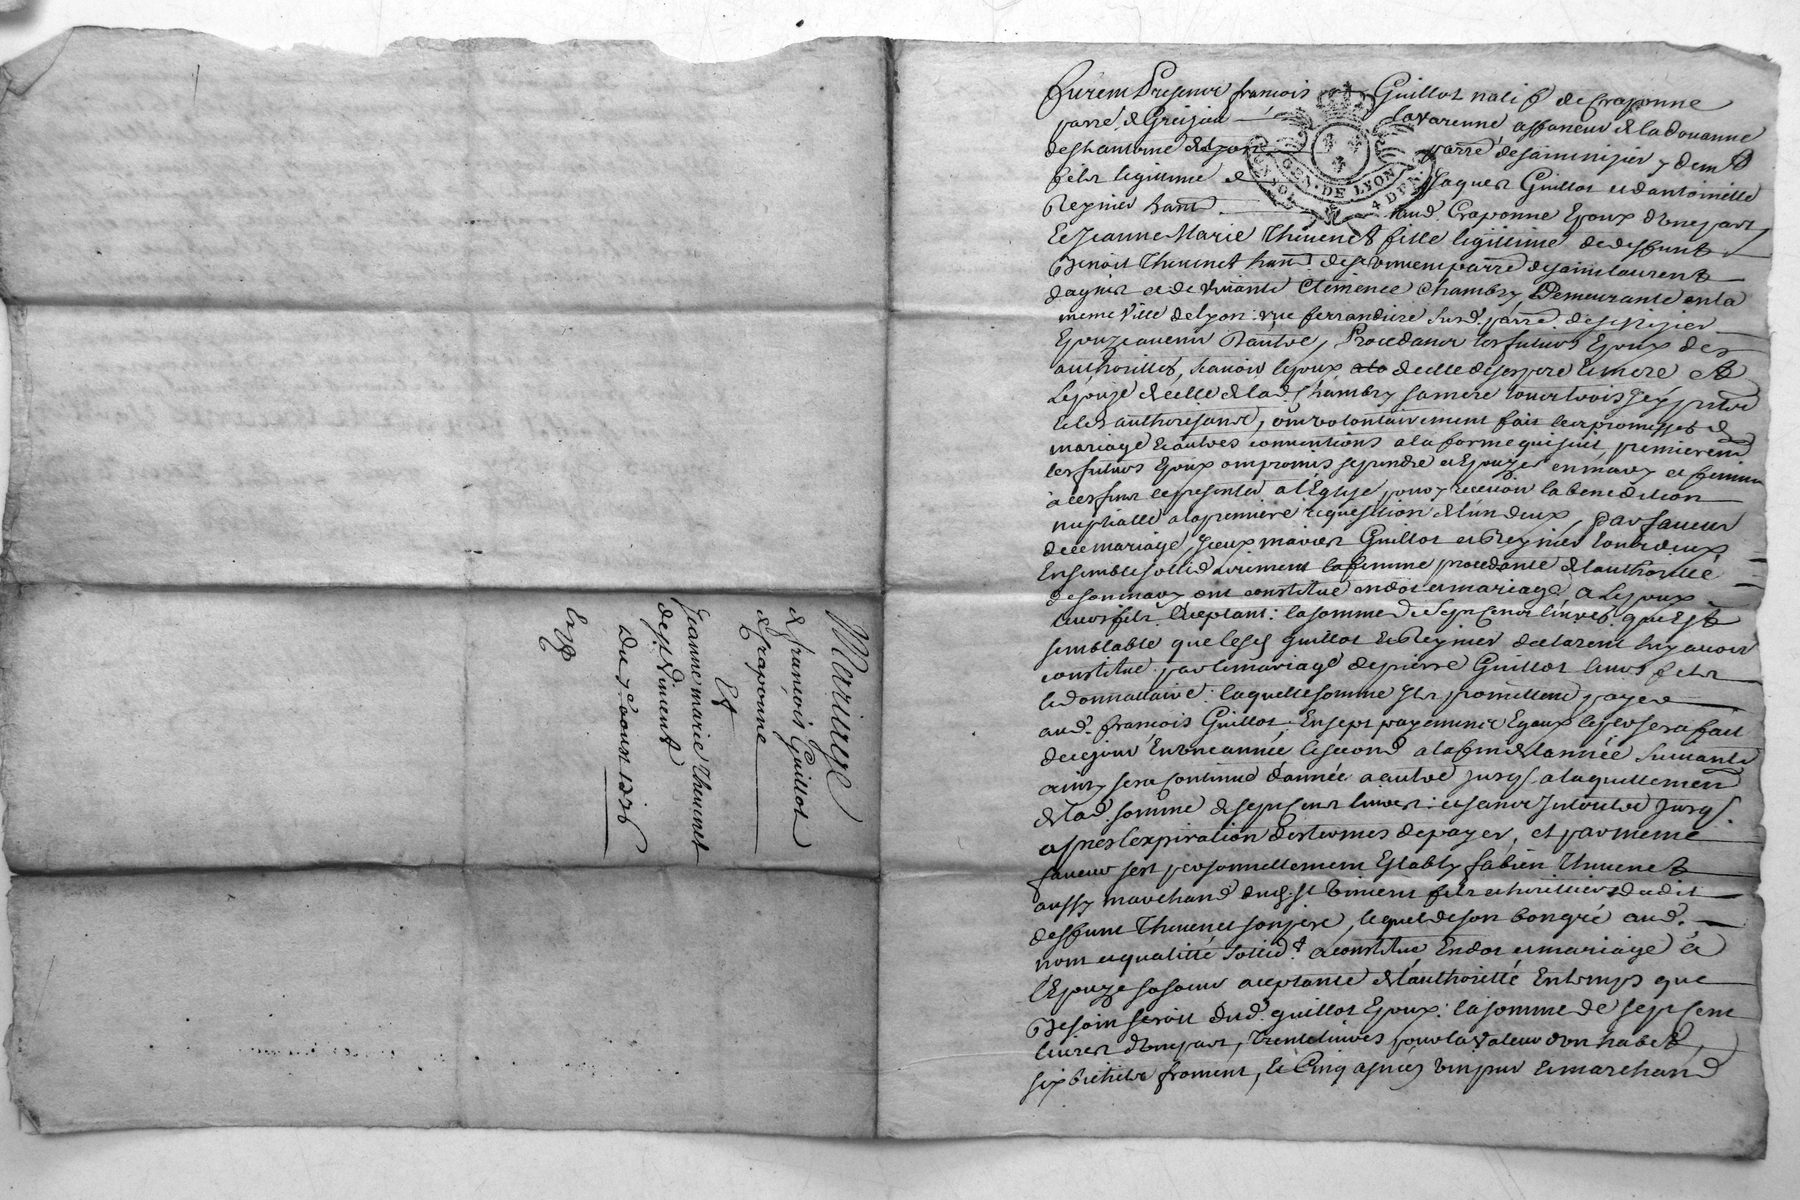 Mariage
de francois Guillot
de Craponne
Et
Jeanne marie Thevenet
de st Vincent
Du 7e aoust 1726
Exp
GEN · DE LYON
4 D PR
furent Presents francois Guillot natif de Craponne
parre de Grezieu Lavarenne affaneur de la douanne
parre de saint nizier y dem t
fils legitime de Jaques Guillot et de antoinette
Reynier hants aud. Craponne Epoux d'une part
Et Jeanne Marie Thevenet fille legitime de deffunt
Benoit Thevenet hant de st Vincent parre de saint laurent
dagnis et de vivante Clemence Chambry Demeurante en la
meme Ville de lyon rue ferrandiere sur d. parre de st nizier
Epouze avenir Dautre, Procedants les futurs Epoux des
authorittes, scavoir lepoux de celle de ses pere et mere et
Lepouze de celle de la d. Chambry sa mere tous trois icy pnts
et les authorisants, ont volontairement fait les promesses de
mariage et autres conventions a la forme qui suit, premierem
les futurs Epoux ont promis se prendre et Epouzer en mary et femme
a ces fins se presenter a l'Eglise pour y recevoir la benediction
nuptialle a la premiere requisition de l'un deux, par faveur
de ce mariage, Iceux mariez Guillot et Reynier tous deux
Ensemble sollidairement la femme procedante de l'authoritté
de son mary ont constitué en dot et mariage, a Lepoux
leur fils acceptant la somme de sept cents livres, qui est
semblable que lesd guillot et Reynier declarent luy avoir
constitué par le mariage de pierre Guillot leurs fils
le donnattaire laquelle somme ils promettent payer
aud. francois Guillot En sept payements Egaux le per sera fait
de ce jour En une année le second a la fin de l'année suivante
ainsy sera continué d'année a autre jusqs a laquittement
de lad. somme de sept cents livres et sans Interets jusqs
apres l'expiration des termes de payer, et par meme
faveur sest personnellement Estably fabien Thevenet
aussy marchand dud. st Vincent fils et heritier dudit
deffunt Thevenet son pere, lequel de son bon gré aud.
nom et qualitté sollid.t a constitué En dot et mariage a
l'Epouze sa soeur acceptante de l'authoritté En temps que
Besoin seroit dud. guillot Epoux la somme de sept cent
livres d'une part, trente livres pour la valeur d'un habet,
six bichets froment, le Cinq asnées vin pur et marchand